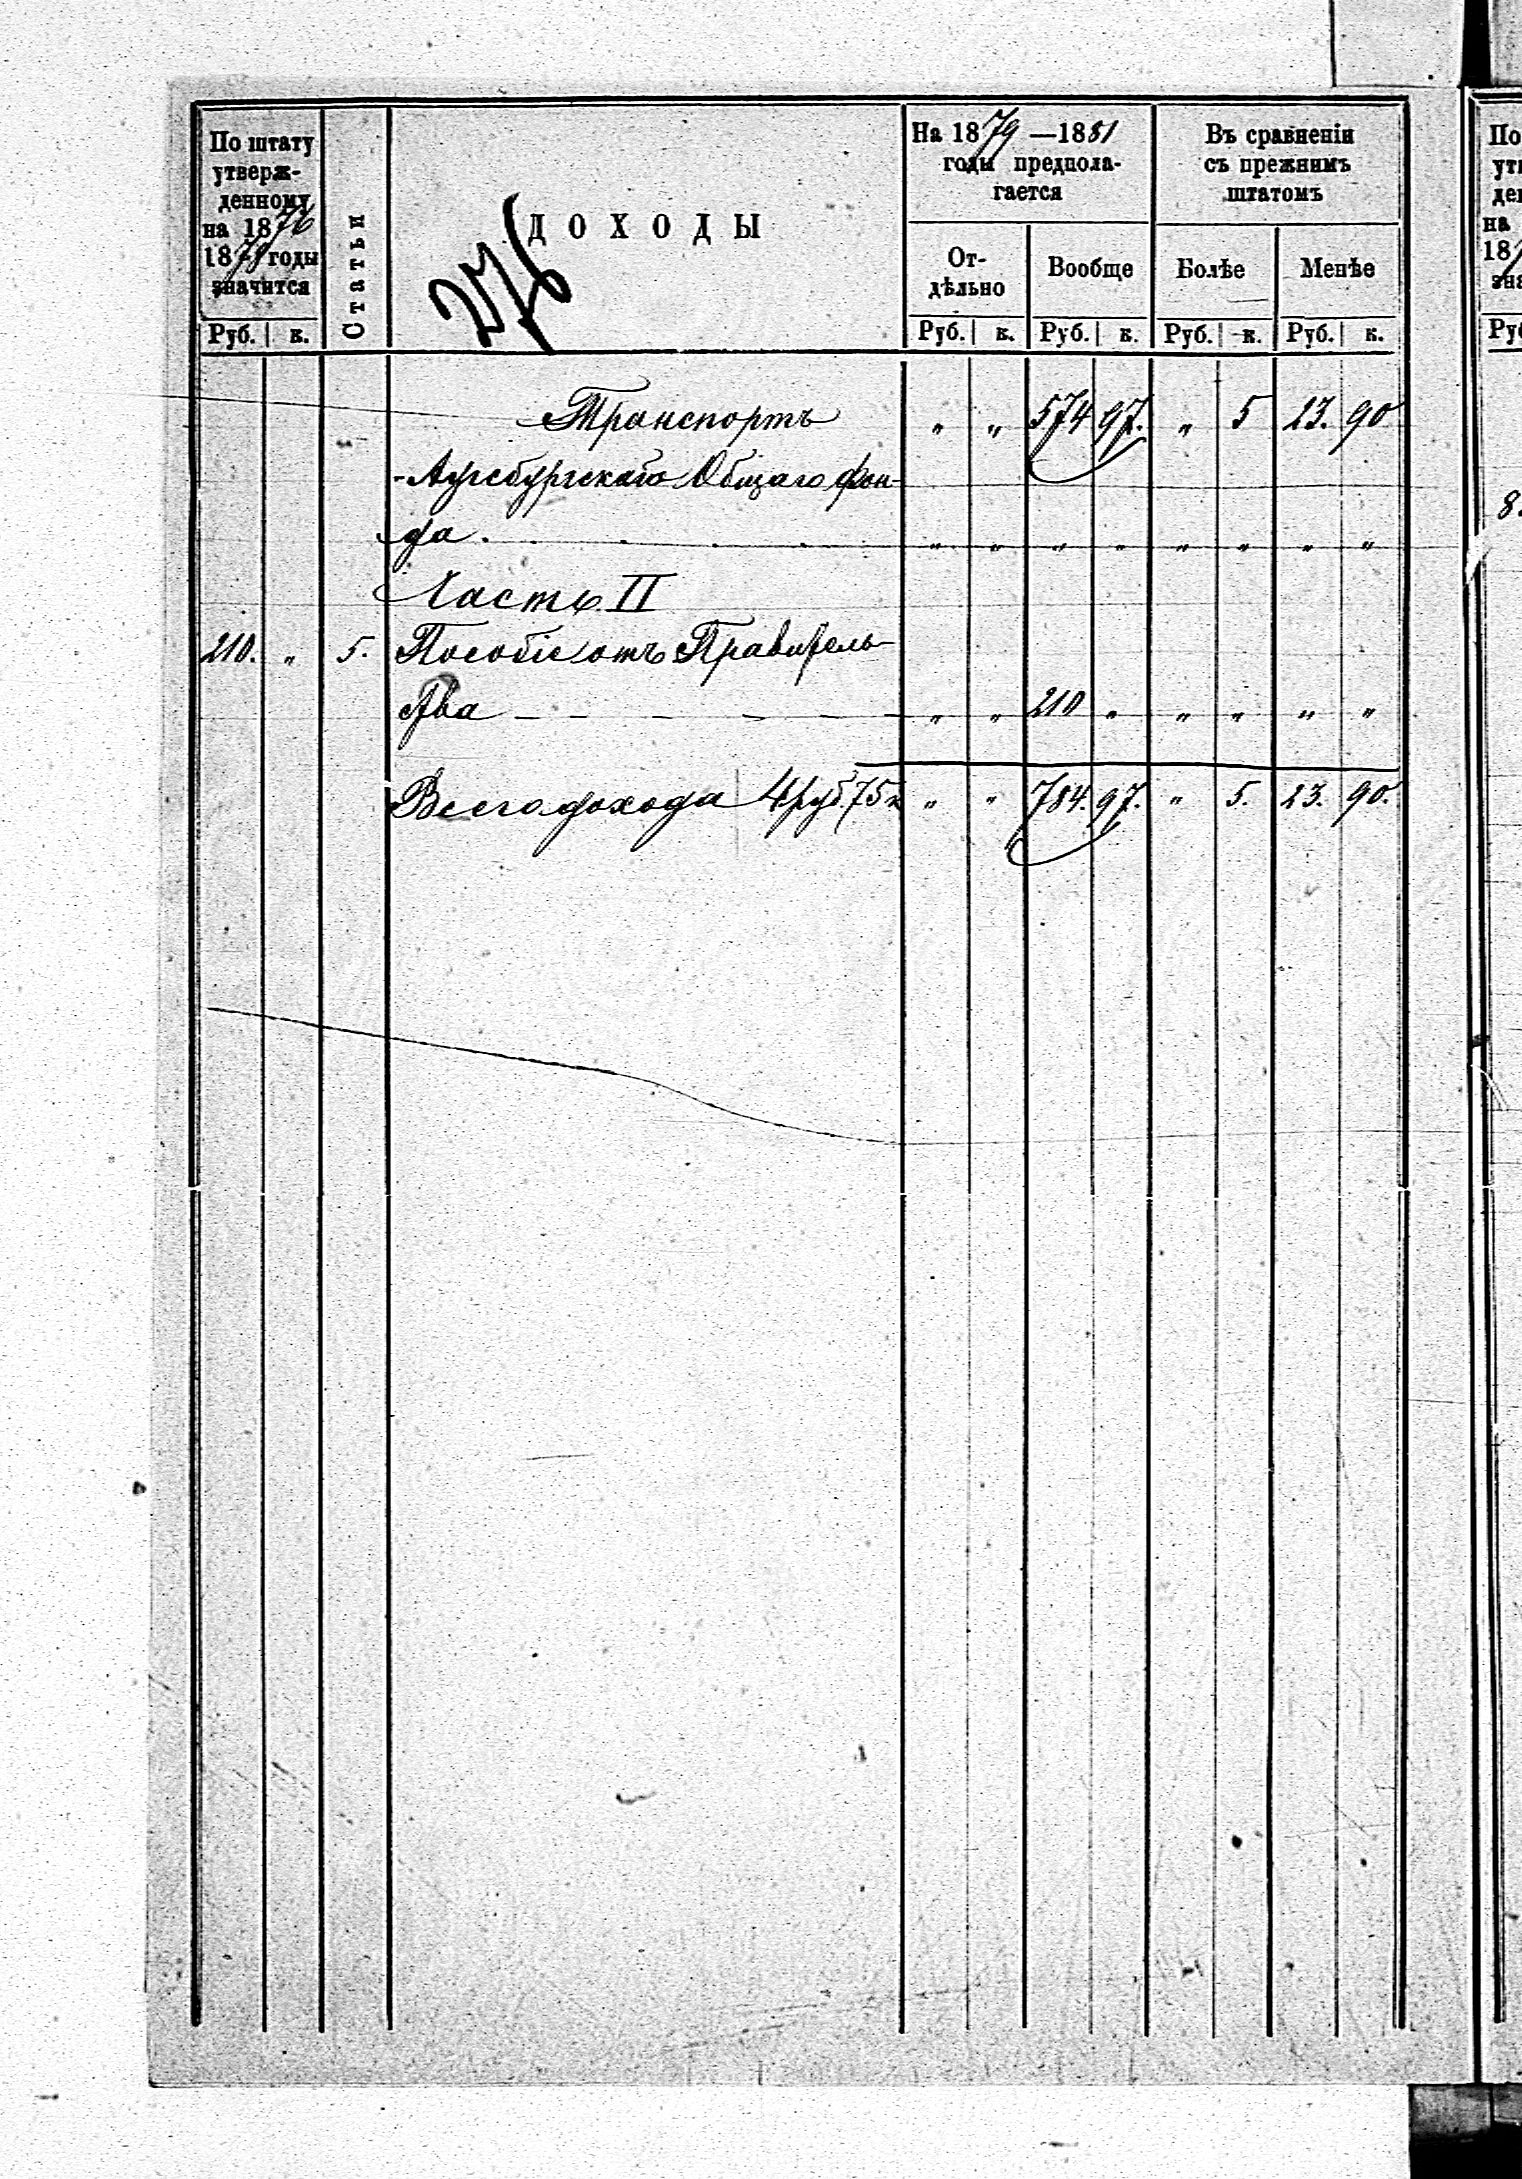 По штату
утверж-
денному
на 1876
1878 годы
значится
Руб. к.
Статьи
ДОХОДЫ
276
На 1879 —1881
годы предпола-
гается
От-
дѣльно
Вообще
Руб. к. Руб. к.
Въ сравненіи
съ прежнимъ
штатомъ
Болѣе Менѣе
Руб. к. Руб. к.
Транспортъ „ „ 574 97. „ 5 23. 90
Аугсбургскаго Общаго фон-
да. „ „ „ „ „ „ „ „
Часть II
210. „ 5. Пособіе отъ Правитель-
ства „ „ 210 „ „ „ „ „
Всего дохода 4 руб. 75 к „ „ 784. 97. „ 5. 23. 90.
По
на
18
Руб
8.